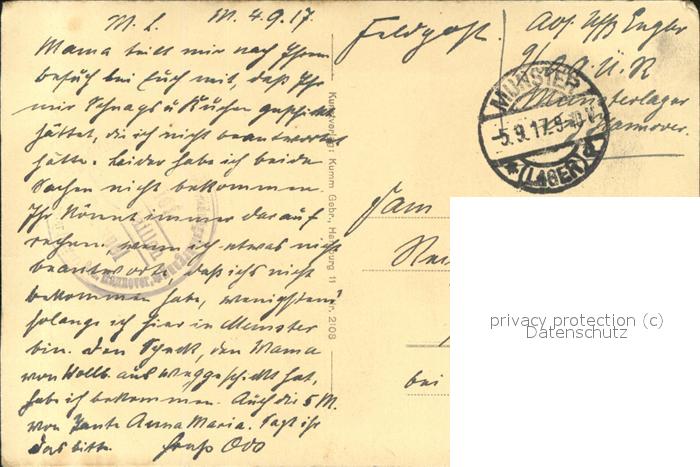 M. L. M. 4.9.17.
Mama teilt mir nach Ihrem
besuch bei Euch mit, daß Ihr
mir Schnaps u Kuchen geschickt
hättet, die ich nicht beantwortet
hätte. Leider habe ich beide
Sachen nicht bekommen.
Ihr könnt immer darauf
rechnen, wenn ich etwas nicht
beantworte, daß ich's nicht
bekommen habe, wenigstens
solange ich hier in Munster
bin. Den Speck, den Mama
von Hollb. aus weggeschickt hat,
habe ich bekommen. Auch die 5 M.
von Tante Anna Maria. Sagt ihr
das bitte. Gruß Odo
Kunstverlag: Kumm Gebr., Hamburg 11 Nr. 2108
Feldpost.
Abs. Uffz Engler
Munsterlager
Hannover.
MUNSTER
5.9.17.9-10V.
(LAGER)
Hannover
bei
privacy protection (c)
Datenschutz